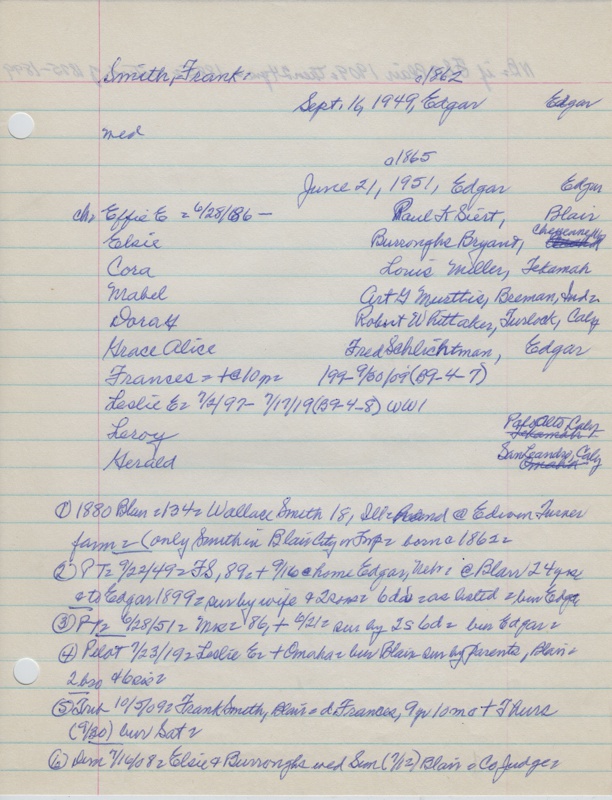 Smith, Frank = c1862
Sept. 16, 1949, Edgar Edgar
med
c1865
June 21, 1951, Edgar Edgar
ch: Effie E = 6/28/86 - Paul K Siert, Blair
Elsie Burroughs Bryant, Cheyenne, W
Cora Louis Miller, Tekamah
Mabel Art G Murttis, Beeman, Ind =
Dora Robert Whittaker, Turlock, Calif
Grace Alice Fred Schlichtman, Edgar
Frances = + c10 pm 199 - 9/30/09 (B9-4-7)
Leslie E = 7/2/97 - 7/17/19 (B9-4-8) WW1
Leroy Palo Alto, Calif Tekamah
Gerald San Leandro, Calif Omaha
① 1880 Blair = 134 = Wallace Smith 18, Ill = hand @ Edison Turner
farm = (only Smith in Blair City or Twp = born c 1862 =
② PT = 9/22/49 = FS, 89, + 9/16 c home Edgar, Neb = c Blair 24 yrs
= to Edgar 1899 = sur by wife & 2 sons = 6 da = as listed = bur Edgar
③ PT = 6/28/51 = Mrs = 86, + 6/21 = sur by 2s 6d = bur Edgar =
④ Pilot 7/23/19 = Leslie E = + Omaha = bur Blair sur by parents, Blair =
2 bro 6 sis =
⑤ Trib 10/5/09 = Frank Smith, Blair = d Frances, 9 yr 10 mo + Thurs
(9/30) bur Sat =
⑥ Dem 7/16/08 = Elsie & Burroughs wed Sun (7/12) Blair = Co Judge =